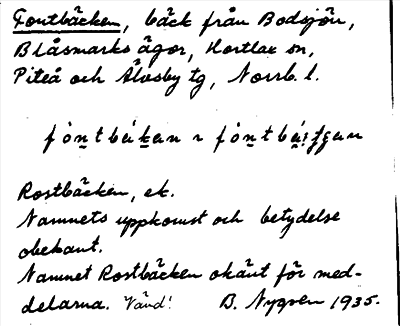 Fontbäcken, bäck från Bodsjön,
Blåsmarks ägor, Hortlax sn,
Piteå och Älvsby tg, Norrb. l.
Rostbäcken, ek.
Namnets uppkomst och betydelse
obekant.
Namnet Rostbäcken okänt för med-
delarna. Vänd! B. Nygren 1935.